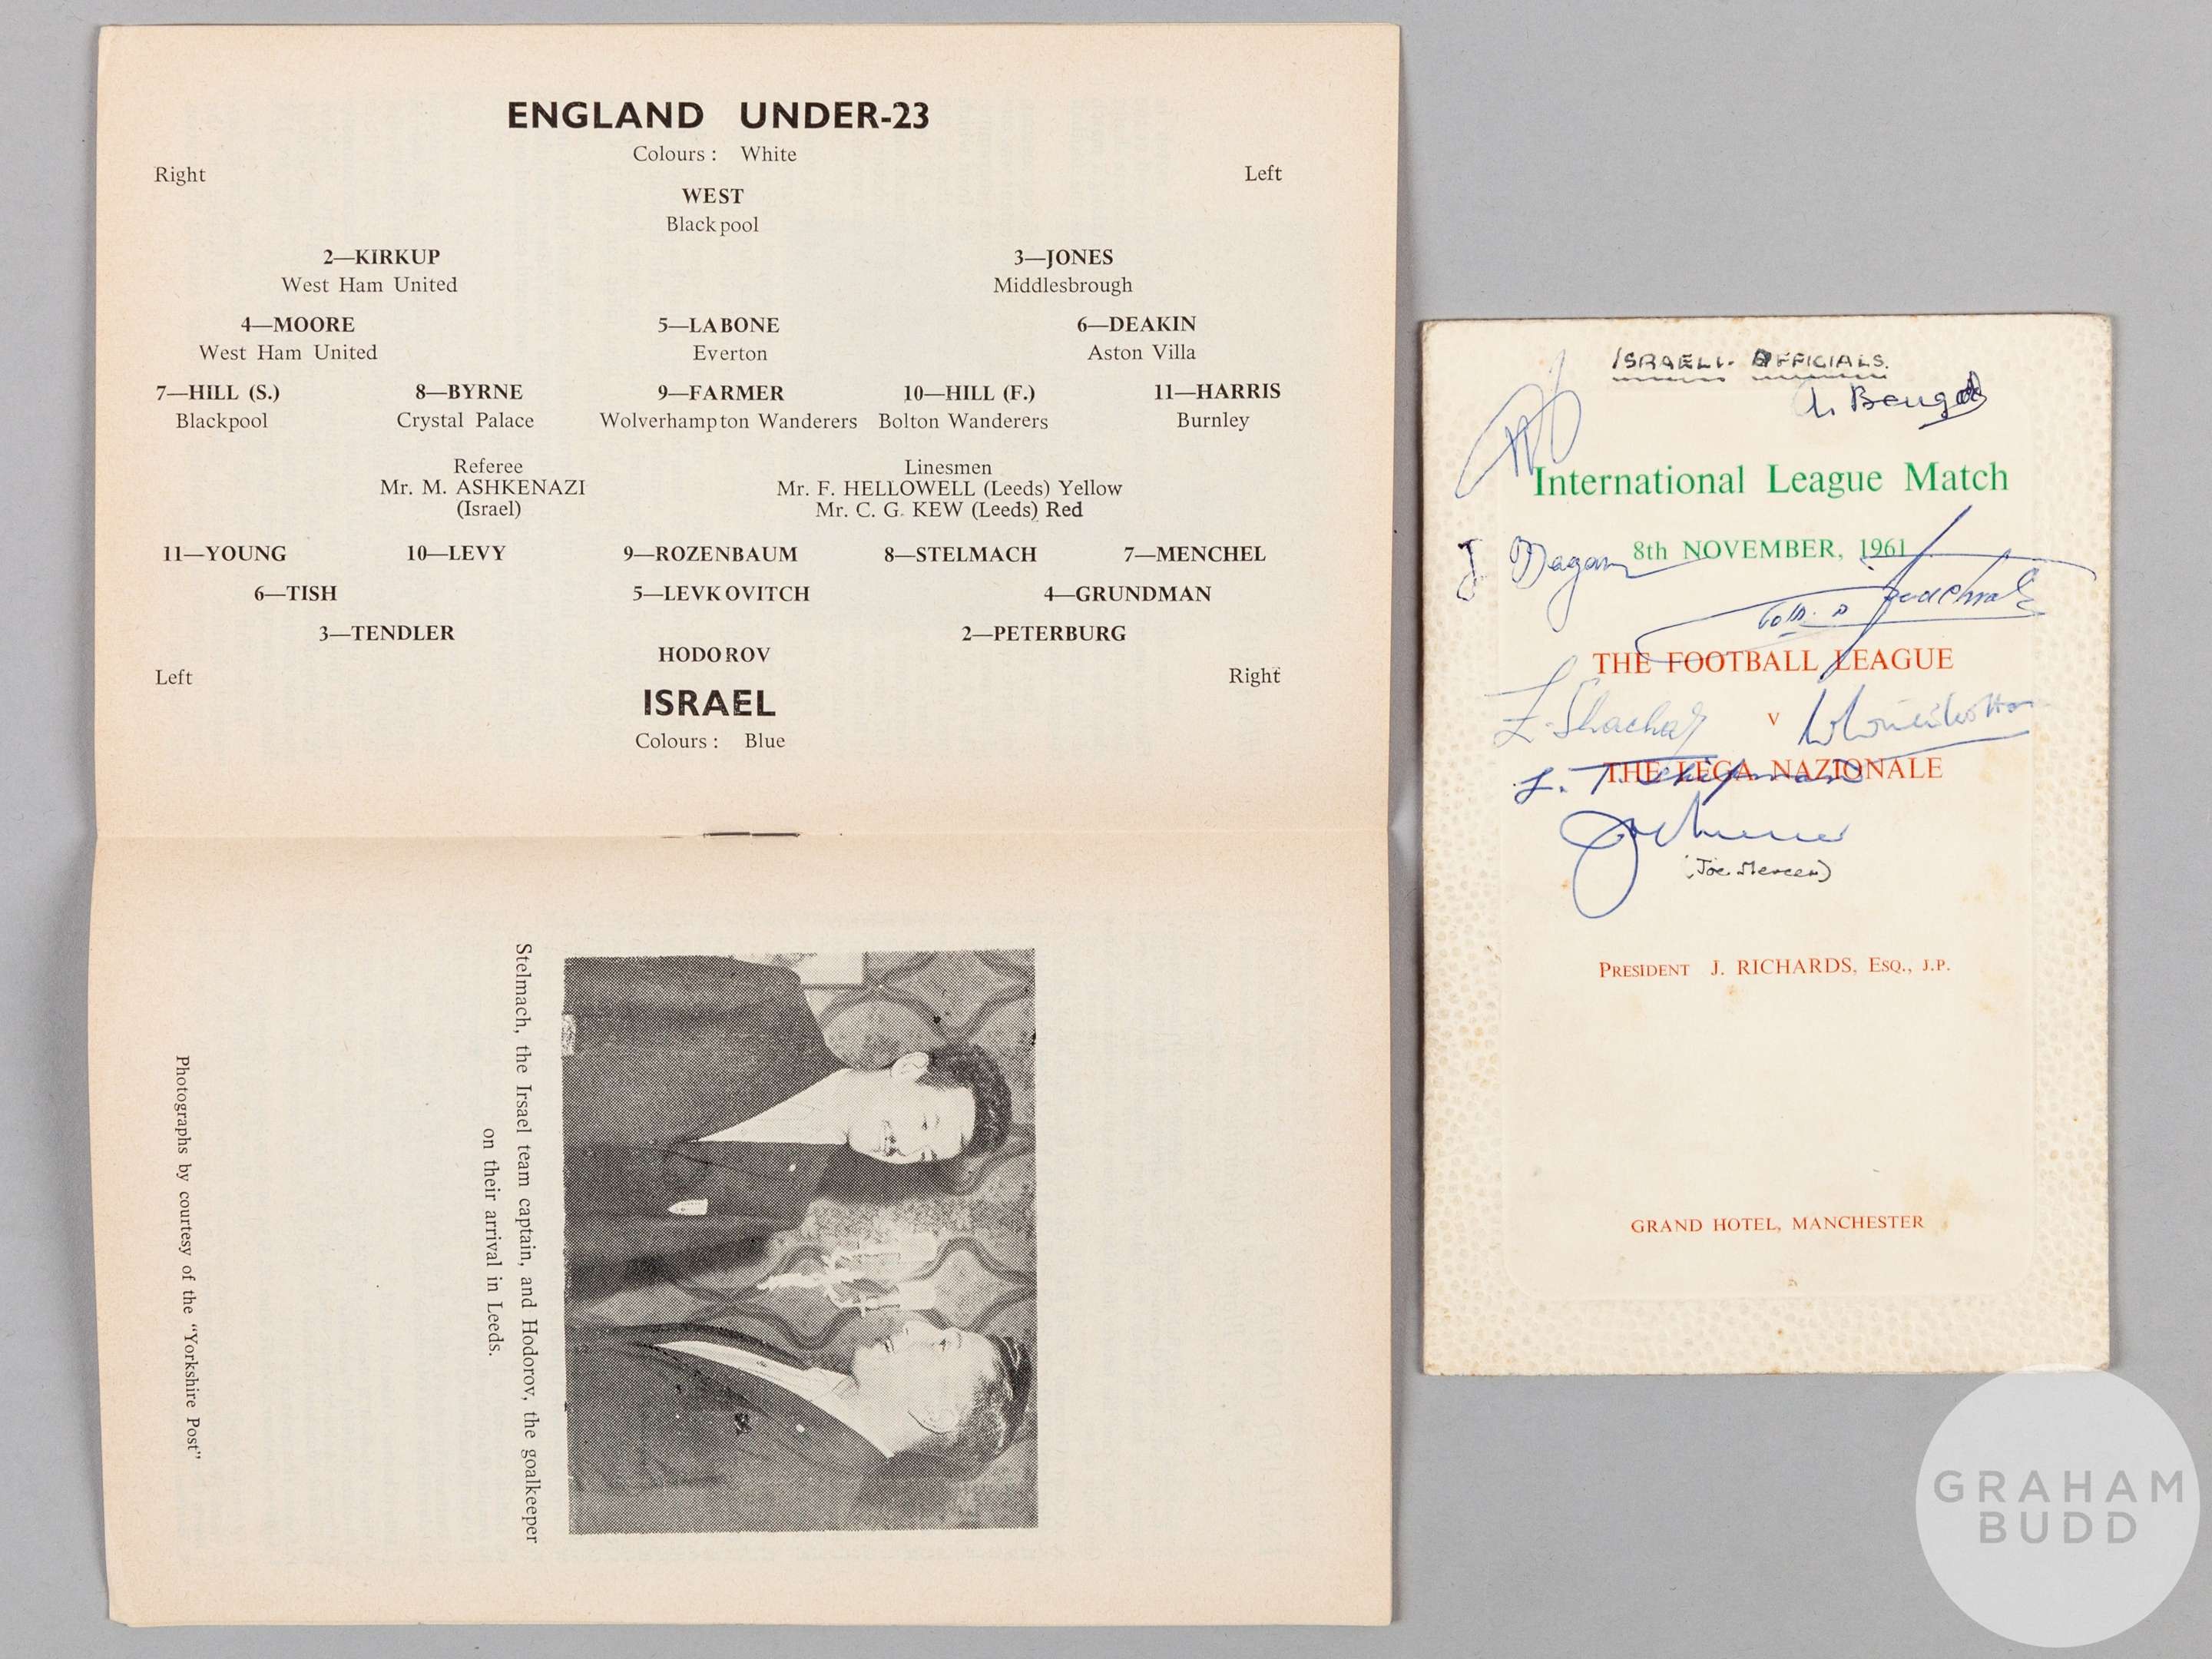 ENGLAND UNDER-23
Colours : White
Right Left
WEST
Blackpool
2—KIRKUP 3—JONES
West Ham United Middlesbrough
4—MOORE 5—LABONE 6—DEAKIN
West Ham United Everton Aston Villa
7—HILL (S.) 8—BYRNE 9—FARMER 10—HILL (F.) 11—HARRIS
Blackpool Crystal Palace Wolverhampton Wanderers Bolton Wanderers Burnley
Referee Linesmen
Mr. M. ASHKENAZI Mr. F. HELLOWELL (Leeds) Yellow
(Israel) Mr. C. G. KEW (Leeds) Red
11—YOUNG 10—LEVY 9—ROZENBAUM 8—STELMACH 7—MENCHEL
6—TISH 5—LEVKOVITCH 4—GRUNDMAN
3—TENDLER 2—PETERBURG
HODOROV
Left Right
ISRAEL
Colours : Blue
Stelmach, the Irsael team captain, and Hodorov, the goalkeeper
on their arrival in Leeds.
Photographs by courtesy of the "Yorkshire Post"
ISRAELI. OFFICIALS.
International League Match
J Dagan
8th NOVEMBER, 1961
THE FOOTBALL LEAGUE
v
THE LEGA NAZIONALE
(Joe Mercer)
PRESIDENT J. RICHARDS, ESQ., J.P.
GRAND HOTEL, MANCHESTER
GRAHAM
BUDD